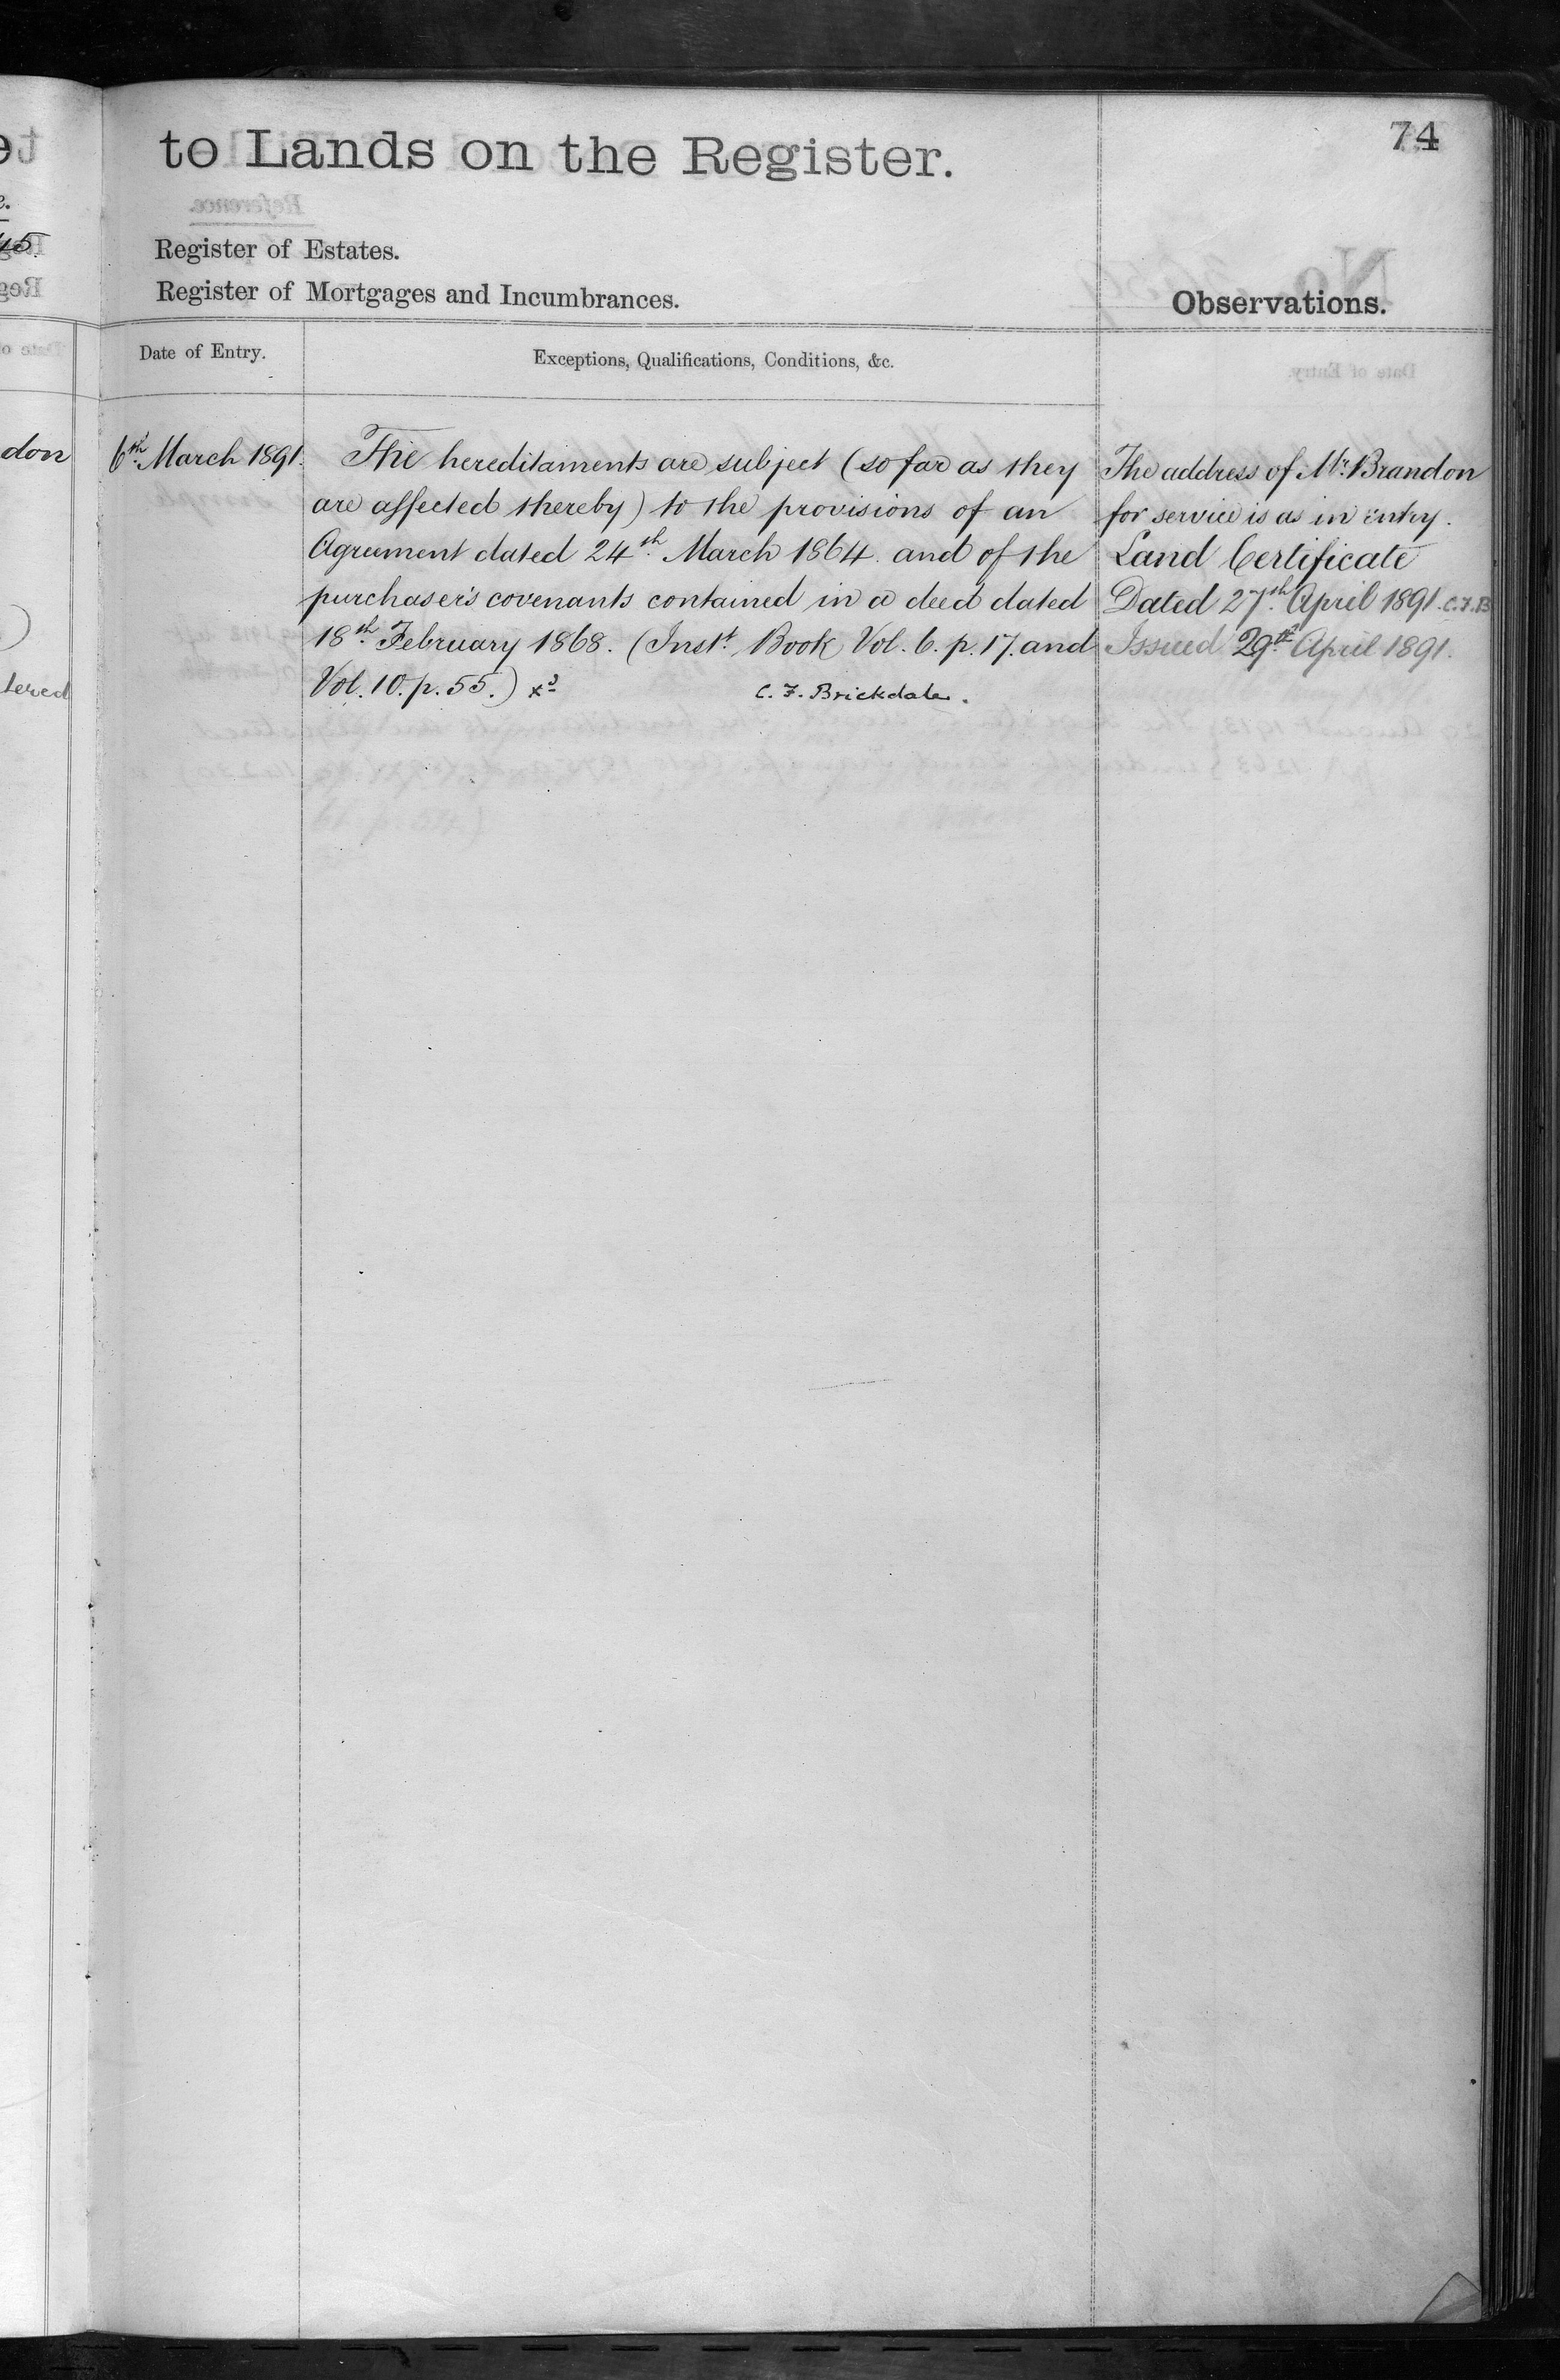 74
to Lands on the Register.
Register of Estates.
Register of Mortgages and Incumbrances.
Observations.
Date of Entry.
Exceptions, Qualifications, Conditions, &c.
6th March 1891.
The hereditaments are subject (so far as they
are affected thereby) to the provisions of an
Agreement dated 24th March 1864. and of the
purchaser's covenants contained in a deed dated
18th February 1868. (Inst. Book Vol. 6. p. 17. and
Vol. 10. p. 55.)
C. F. Brickdale.
The address of Mr. Brandon
for service is as in Entry.
Land Certificate
Dated 27th April 1891. C.F.B
Issued 29th April 1891.
don
tered